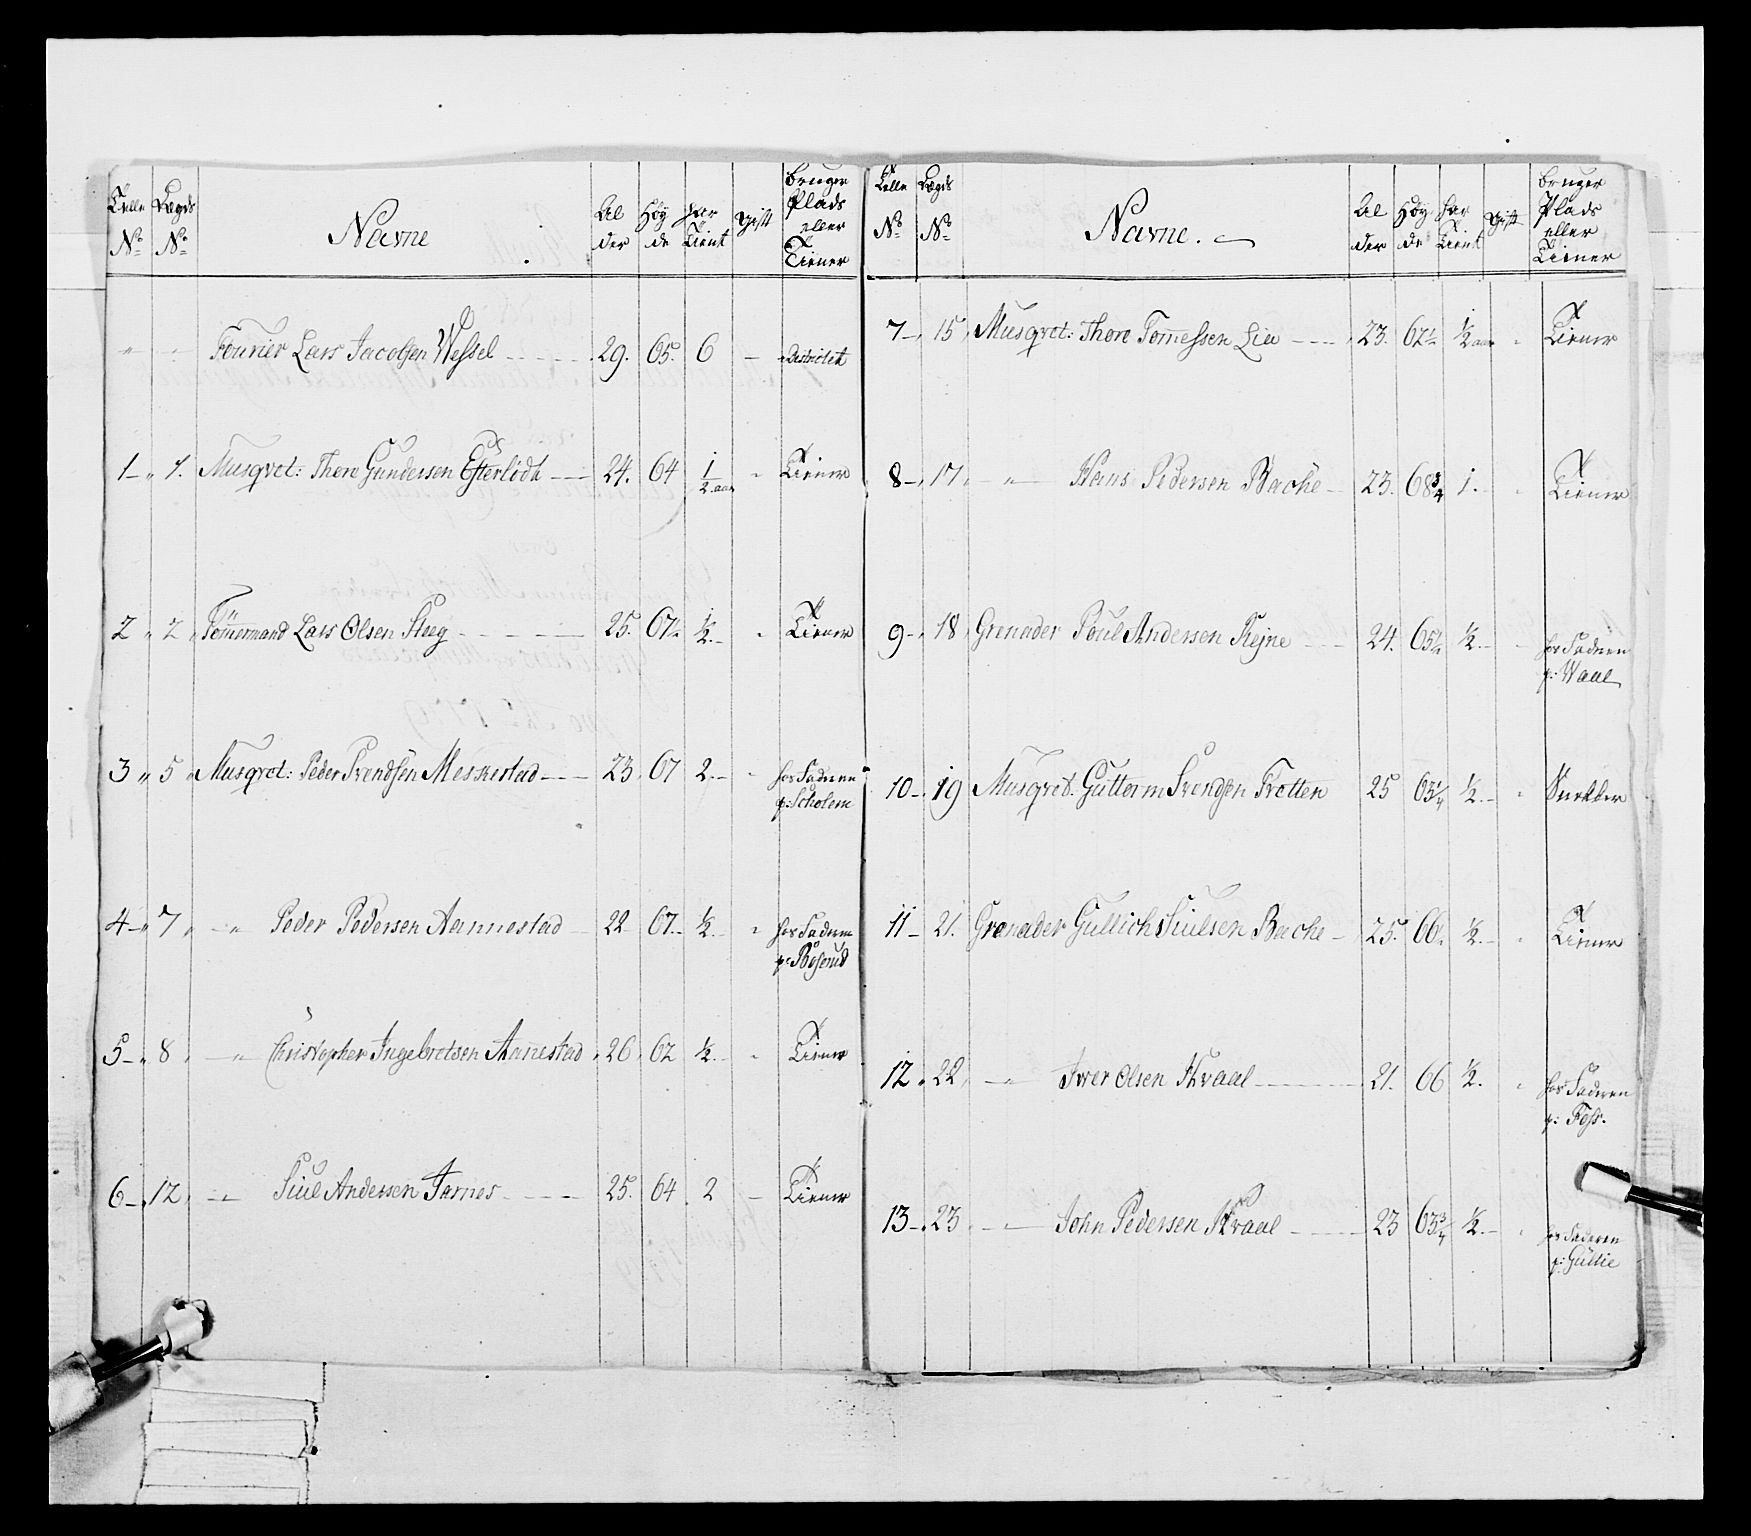 Telle No Lægds No Navne Al der Høy de har Tient Gift bruger Plads eller Tiener
" " Fourier Lars Jacobsen Wessel - - - - 29. 65. 6 - Districtet
1 - " 1. Musqvet: Thore Gundersen Efterlødt - - 24. 64 1/2 aar " Tiener
2 " 2 " Tømmermand Lars Olsen Steeg - - - - 25. 67 1/2. - " Tiener
3 " 5 " Musqvet: Peder Svendsen Meskestad - - 23. 67 2. - " hos Faderen
p: Scholem
4 - " 7 " - " - Peder Pedersen Aannestad - 22 67. - 1/2. - " hos Faderen
p: Bøserud
5 - " 8 " - " - Christopher Ingebretsen Aanestad " 26. 62 1/2. - " Tiener
6 - " 12 " - " - Siul Andersen Jarnes - - - - 25. 64. 2 - Tiener
Telle No Lægds No Navne. Al der Høy de har Tient Gift bruger Plads eller Tiener
7 - " 15 " Musqvet: Thore Tomessen Lie - - - 23. 62 1/2 1/2 aar " Tiener
8 - " 17 " - " - Hans Pedersen Bache - 23. 68 3/4 1. - " Tiener
9 - " 18 Grenader Poul Andersen Rejne - - 24. 65 1/2 1/2. - " hos Faderen
p: Waal
10 - " 19 Musqvet: Guttorm Svendsen Trotten 25 63 1/4 1/2. - " Snekker
11 - " 21. Grenader Gullich Siulsen Bache - 25. 66 1/2. - " Tiener
12 " 22 " - " - Iver Olsen Kraal - - - - 21. 66 1/2. " hos Faderen
p: Foss.
13 - " 23 - " - John Pedersen Kraal - - - 23 63 3/4 1/2. - " hos Faderen
p: Gullie